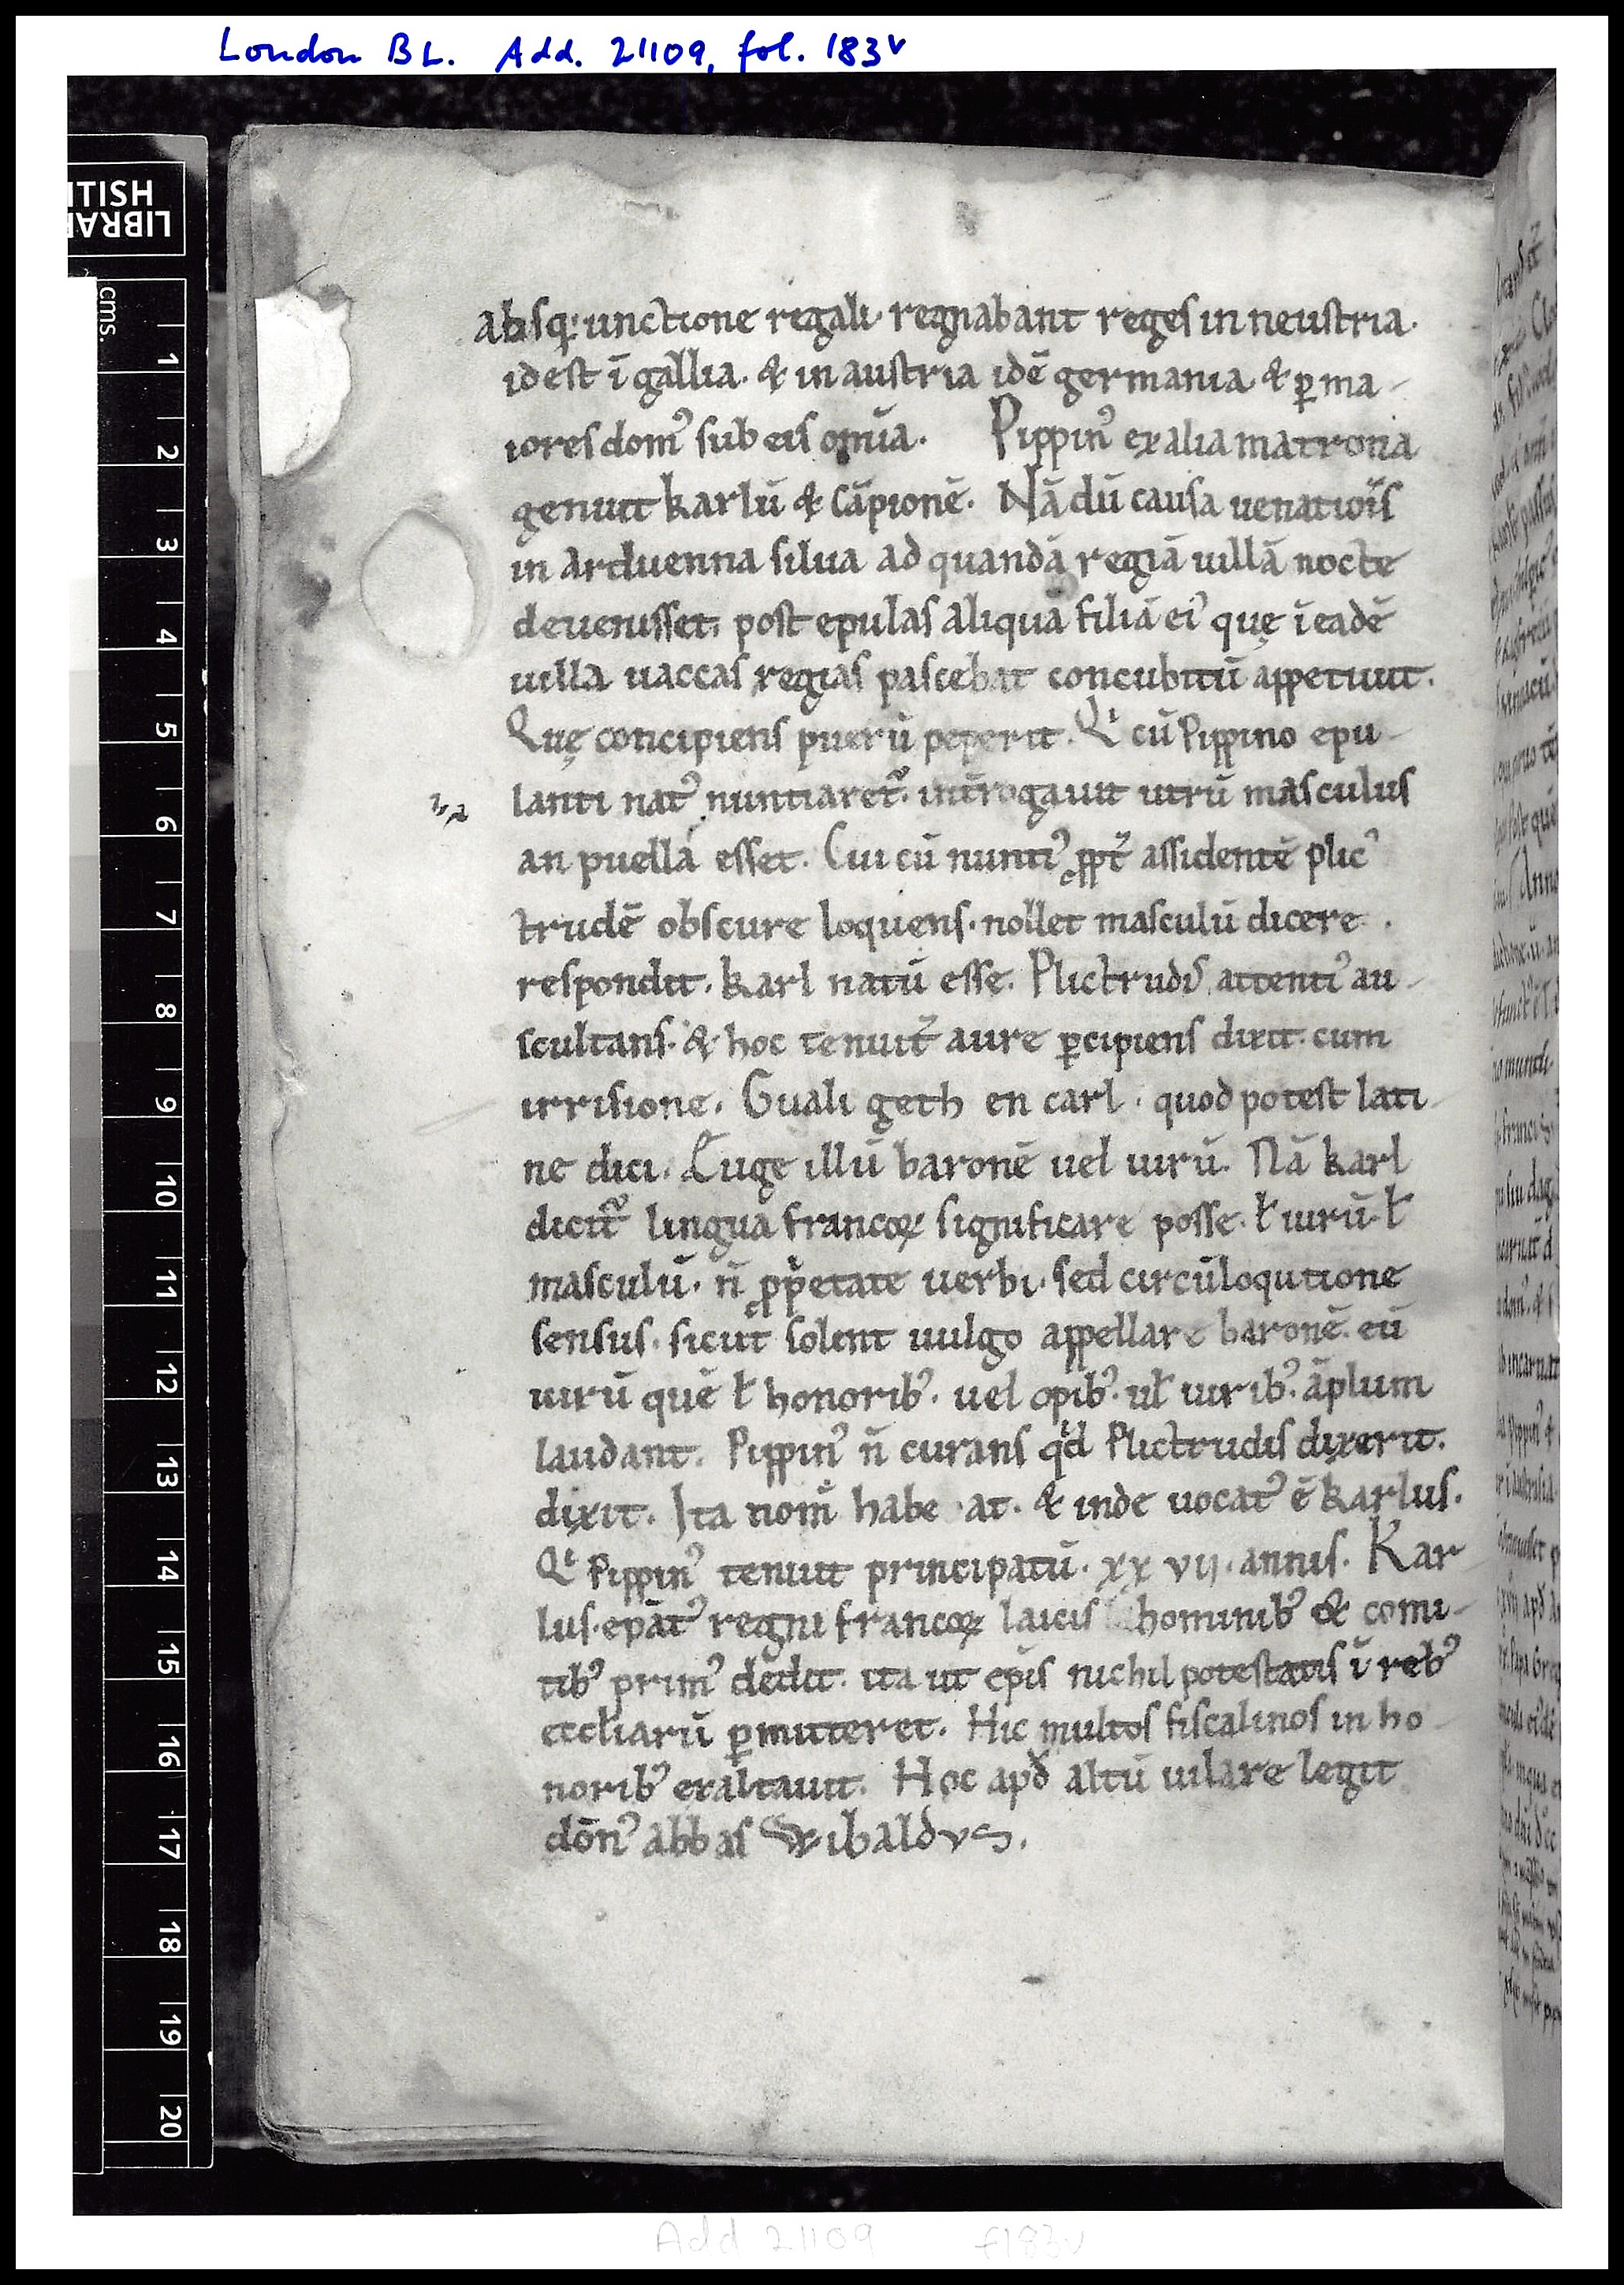 London BL. Add. 21109, fol. 183v
BRITISH
LIBRARY
cms.
1
2
3
4
5
6
7
8
9
10
11
12
13
14
15
16
17
18
19
20
absq; unctione regali· regnabant reges in neustria·
idest ī gallia· & in austria idē germania· & ꝑ ma-
iores domꝰ sub eis om̄ia· Pippinꝰ ex alia matrona
genuit karlū & cāpionē· Nā dū causa uenatiōis
in arduenna silua ad quandā regiā uillā nocte
deuenisset, post epulas aliquā filiā eiꝰ quę ī eadē
uilla uaccas regias pascebat concubitū appetiuit.
Quę concipiens puerū peperit. Qͥ cū Pippino epu-
lanti natꝰ nuntiaret᷑· int̄rogauit utrū masculus
an puella esset. Cui cū nuntiꝰ ꝓpt̄ assidentē plic
trudē obscure loquens· nollet masculū dicere·
respondit· karl natū esse. Plictrudis attentiꝰ au-
scultans· & hoc tenuit̄ aure ꝑcipiens dixit· cum
irrisione. Guali geth en carl· quod potest lati-
ne dici. Euge illū baronē uel uirū. Nā karl
dicit᷑ lingua francoꝝ significare posse· ł uirū· ł
masculū· n̄ ꝓpͥetate uerbi· sed circūloqutione
sensus· sicut solent uulgo appellare baronē· eū
uirū quē ł honoribꝰ· uel opibꝰ· uł uiribꝰ· āplum
laudant. Pippinꝰ n̄ curans qͥd Plictrudis dixerit.
dixit. Ita nom̄ habe at· & inde uocatꝰ ē karlus.
Qͥ Pippinꝰ tenuit principatū· xx vii· annis. Kar
lus· epātꝰ regni francoꝝ laicis hominibꝰ & comi-
tibꝰ primꝰ dedit· ita ut ep̄is nichil potestatis ī rebꝰ
eccłiarū ꝑmitteret. Hic multos fiscalinos in ho-
noribꝰ exaltauit. Hoc apđ altū uilare legit
dōnꝰ abbas Wibaldus.
Add 21109 f183v